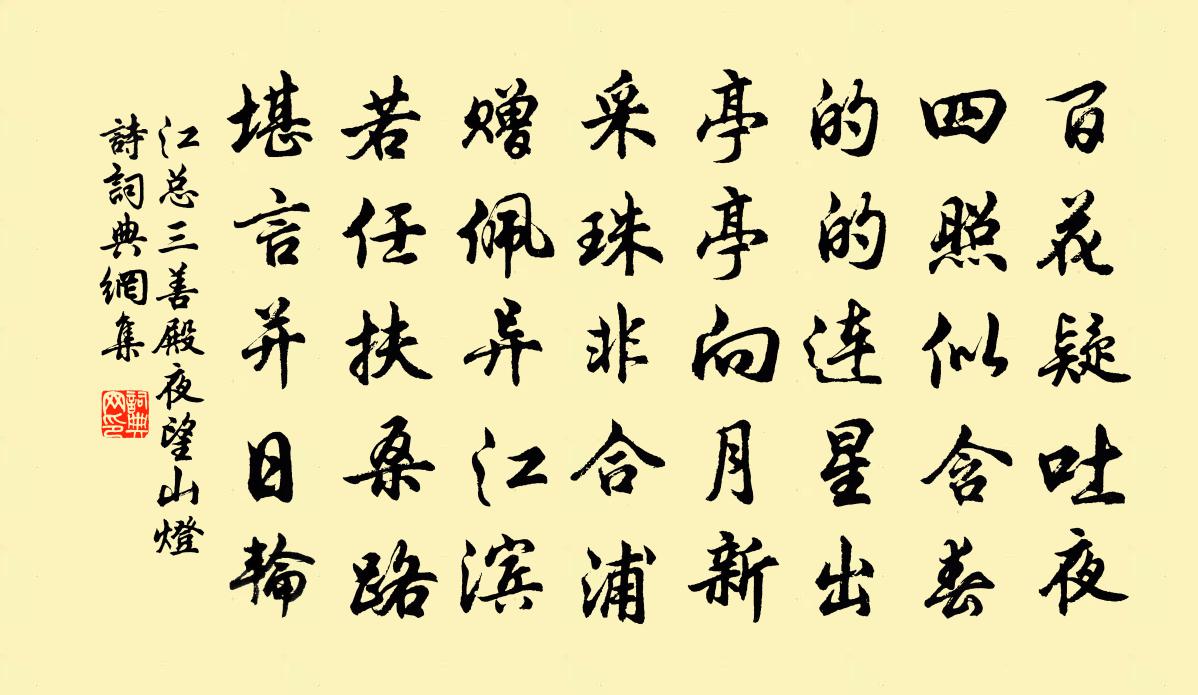 百花疑吐夜
四照似含春
的的连星出
亭亭向月新
采珠非合浦
赠佩异江滨
若任扶桑路
堪言并日轮
江总三善殿夜望山燈
詩詞典網集
詞典網印